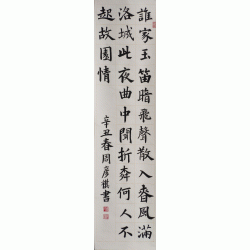 誰家玉笛暗飛聲散入春風滿
洛城此夜曲中聞折柳何人不
起故園情
辛丑春周彦祺書